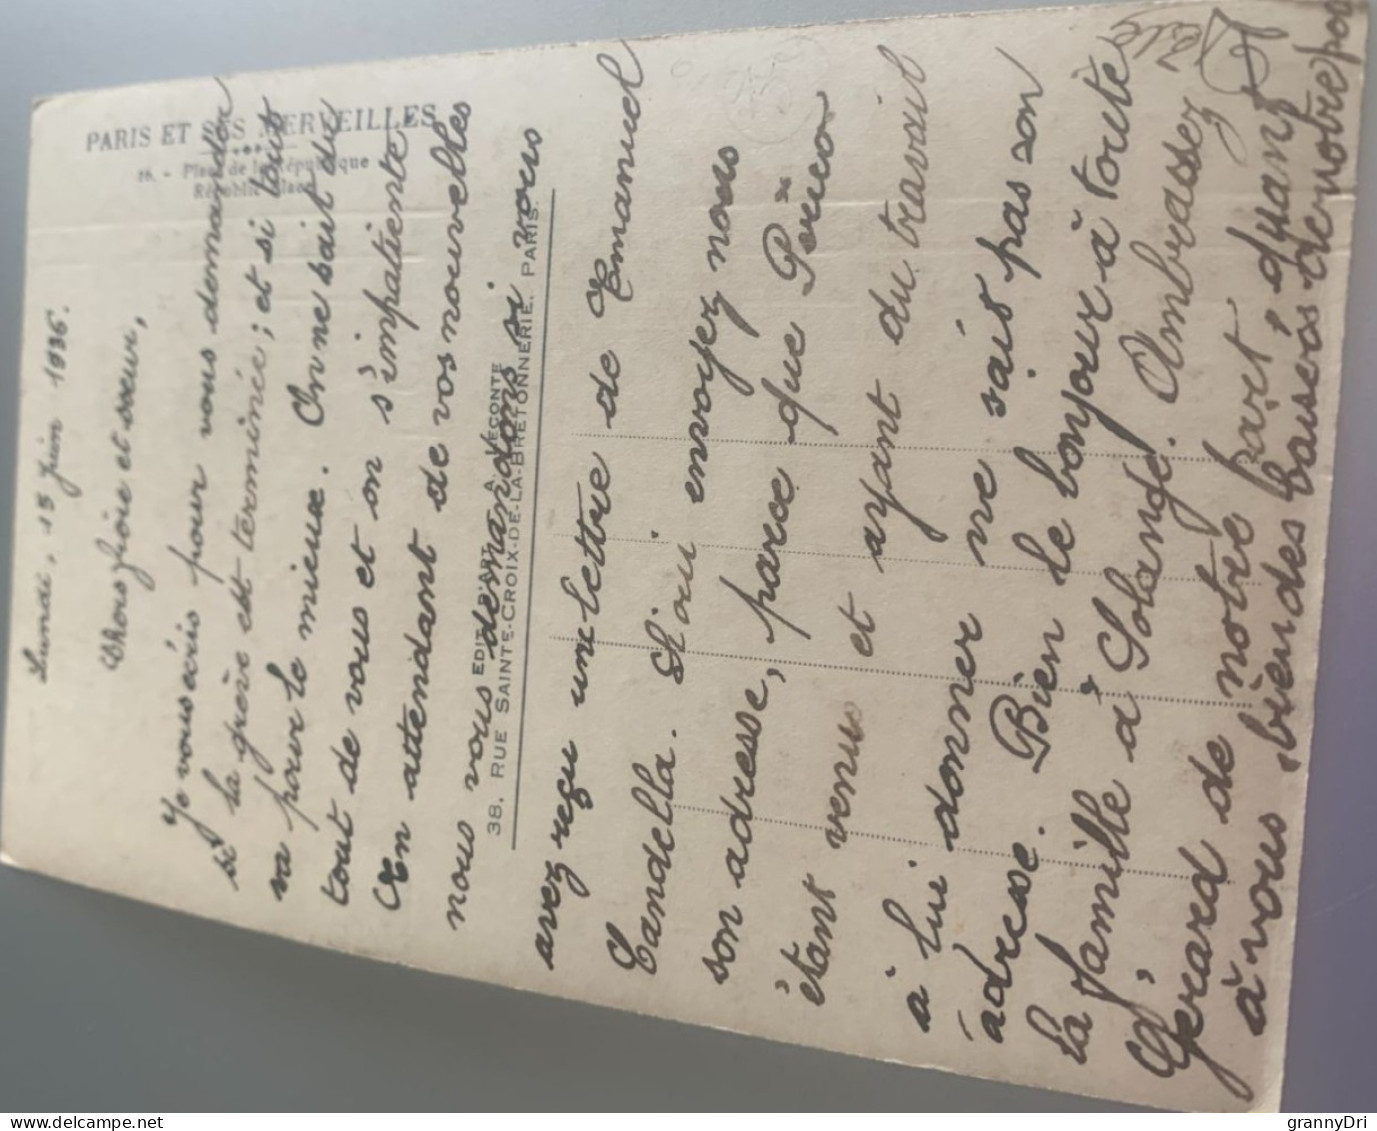 PARIS ET SES MERVEILLES
16. - Place de la République
Républic Place
Lundi, 15 Juin 1936.
Chers frère et sœur,
Je vous écris pour vous demander
si la grève est terminée; et si tout
va pour le mieux. On ne sait du
tout de vous et on s'impatiente.
En attendant de vos nouvelles
nous vous demandons si vous
EDIT. D'ART A. LECONTE
38, RUE SAINTE-CROIX-DE-LA-BRETONNERIE, PARIS.
avez reçu une lettre de Emanuel
Candella. Si oui envoyez nous
son adresse, parce que
étant venu et ayant du travail
à lui donner ne sait pas son
adresse. Bien le bonjour à toute
la famille à Solange. Ambrassez
Gérard de notre part, quant
à vous, bien des baisers de notre
grannyDri
delcampe.net